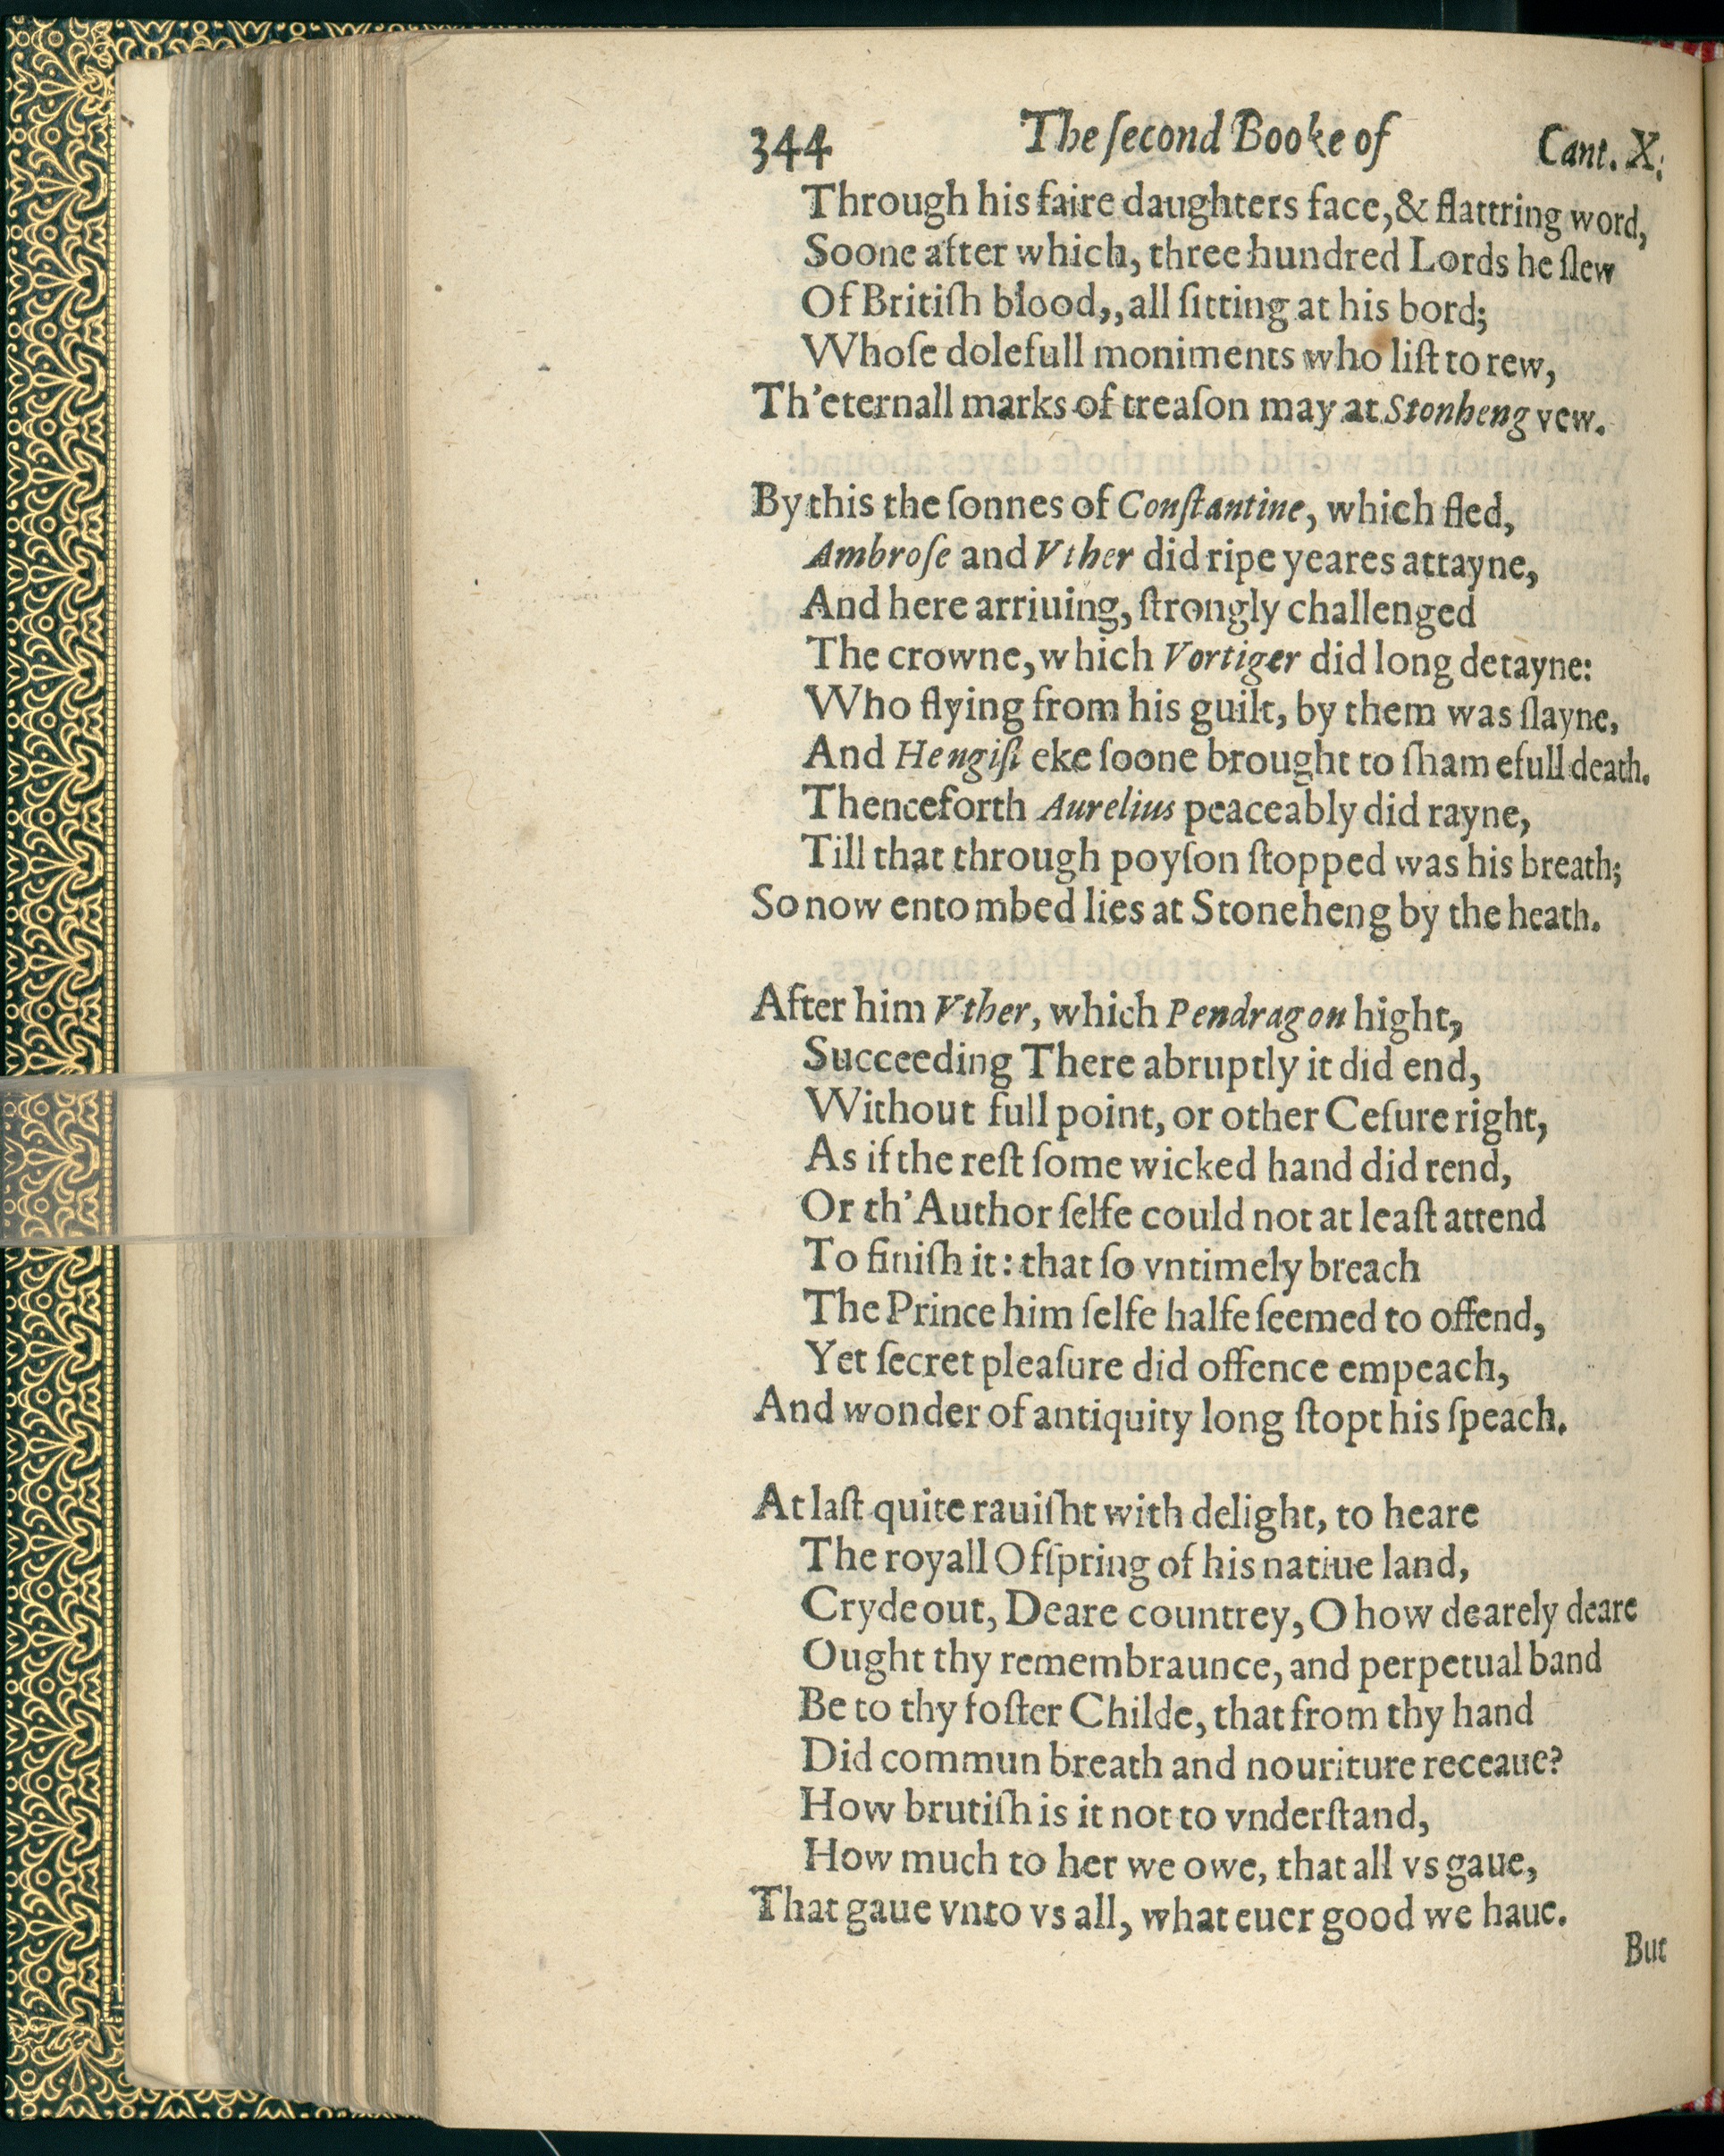 344 The ſecond Booke of Cant. X.
Through his faire daughters face, & flattring word,
Soone after which, three hundred Lords he ſlew
Of Britiſh blood,, all ſitting at his bord;
Whoſe dolefull moniments who liſt to rew,
Th'eternall marks of treaſon may at Stonheng vew.
By this the ſonnes of Conſtantine, which fled,
Ambroſe and Vther did ripe yeares attayne,
And here arriuing, ſtrongly challenged
The crowne, which Vortiger did long detayne:
Who flying from his guilt, by them was ſlayne,
And Hengiſt eke ſoone brought to ſhamefull death.
Thenceforth Aurelius peaceably did rayne,
Till that through poyſon ſtopped was his breath;
So now entombed lies at Stoneheng by the heath.
After him Vther, which Pendragon hight,
Succeeding There abruptly it did end,
Without full point, or other Ceſure right,
As if the reſt ſome wicked hand did rend,
Or th'Author ſelfe could not at leaſt attend
To finiſh it: that ſo vntimely breach
The Prince him ſelfe halfe ſeemed to offend,
Yet ſecret pleaſure did offence empeach,
And wonder of antiquity long ſtopt his ſpeach.
At laſt quite rauiſht with delight, to heare
The royall Ofſpring of his natiue land,
Cryde out, Deare countrey, O how dearely deare
Ought thy remembraunce, and perpetual band
Be to thy foſter Childe, that from thy hand
Did commun breath and nouriture receaue?
How brutiſh is it not to vnderſtand,
How much to her we owe, that all vs gaue,
That gaue vnto vs all, what euer good we haue.
But